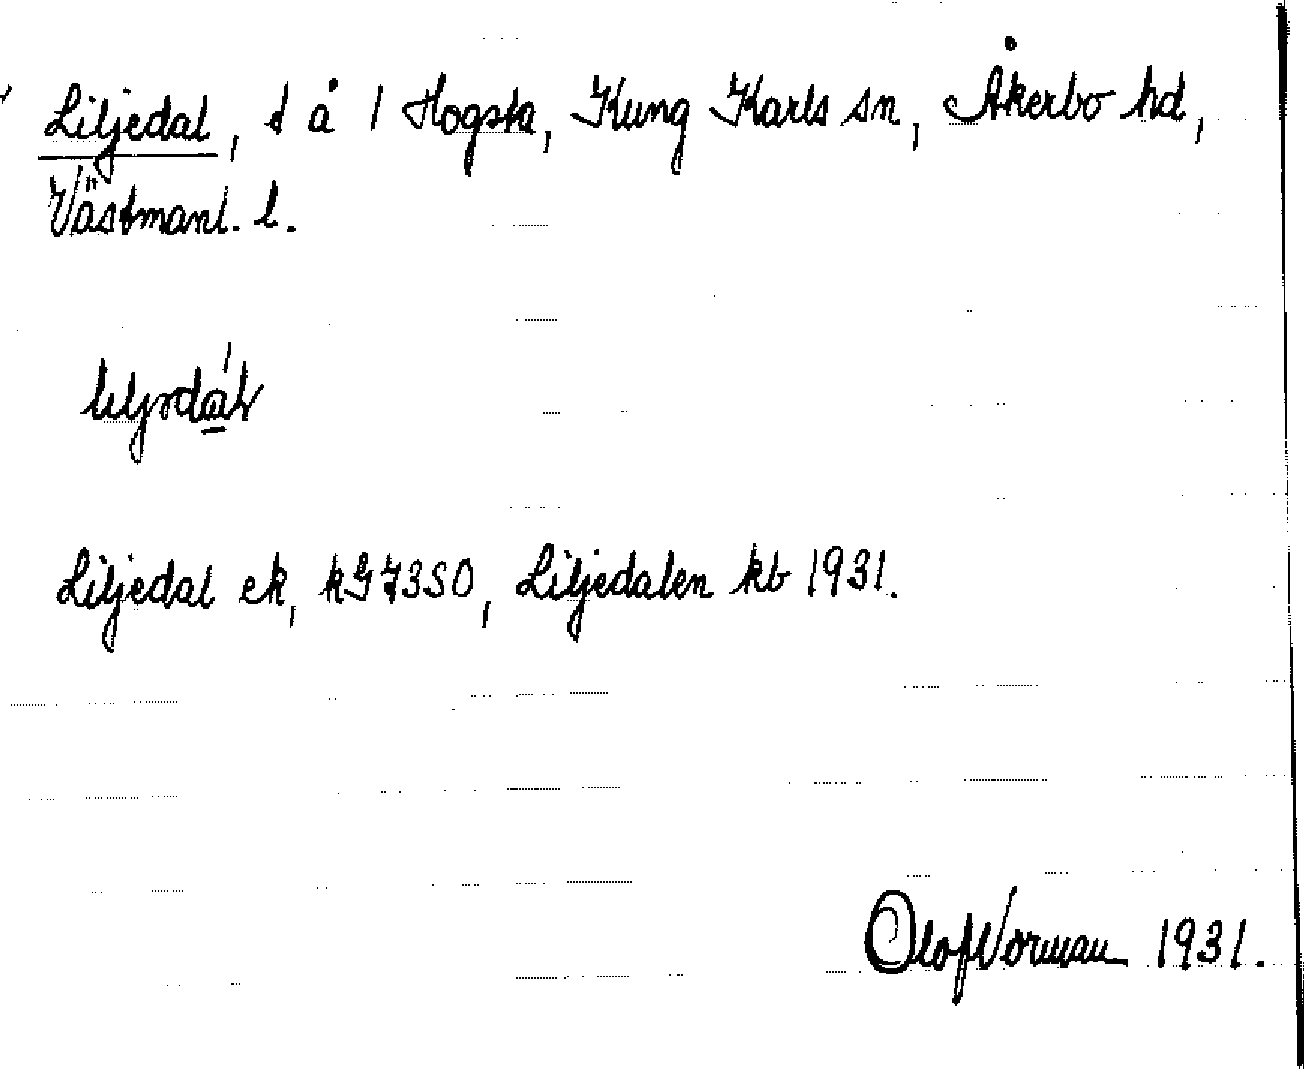 Liljedal, d å 1 Hogsta, Kung Karls sn, Åkerbo hd,
Västmanl. l.
Liljedal ek, kG73SO, Liljedalen kb 1931.
Olof Norman 1931.